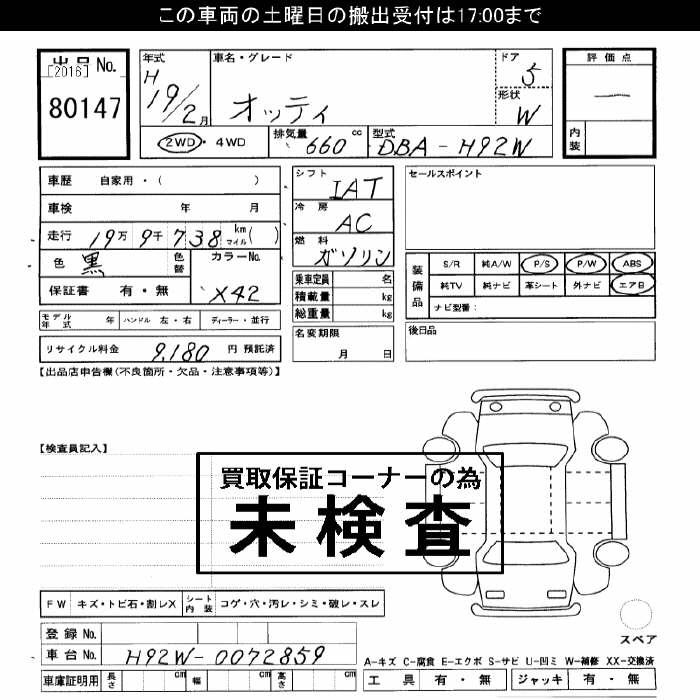 この車両の土曜日の搬出受付は17:00まで
出品 No.
[2016]
80147
年式
H
19/2月
車名・グレード
オッティ
ドア
5
形状
W
2WD・4WD
排気量
660 cc
型式
DBA-H92W
評価点
―
内装
車歴 自家用・( )
車検 年 月
走行 19万9千738 km マイル ( )
色 黒 色替
カラーNo.
X42
保証書 有・無
モデル年式 年 ハンドル 左・右 ディーラー・並行
リサイクル料金 9,180 円 預託済
シフト
IAT
冷房
AC
燃料
ガソリン
乗車定員 名
積載量 kg
総重量 kg
名変期限
月 日
セールスポイント
装備品
S/R 純A/W P/S P/W ABS
純TV 純ナビ 革シート 外ナビ エアB
ナビ型番:
後日品
【出品店申告欄(不良箇所・欠品・注意事項等)】
【検査員記入】
買取保証コーナーの為
未検査
FW キズ・トビ石・割レX シート内装 コゲ・穴・汚レ・シミ・破レ・スレ
スペア
登録 No.
車台 No. H92W-0072859
車庫証明用 長さ cm 幅 cm 高さ cm
A-キズ C-腐食 E-エクボ S-サビ U-凹ミ W-補修 XX-交換済
工具 有・無 ジャッキ 有・無